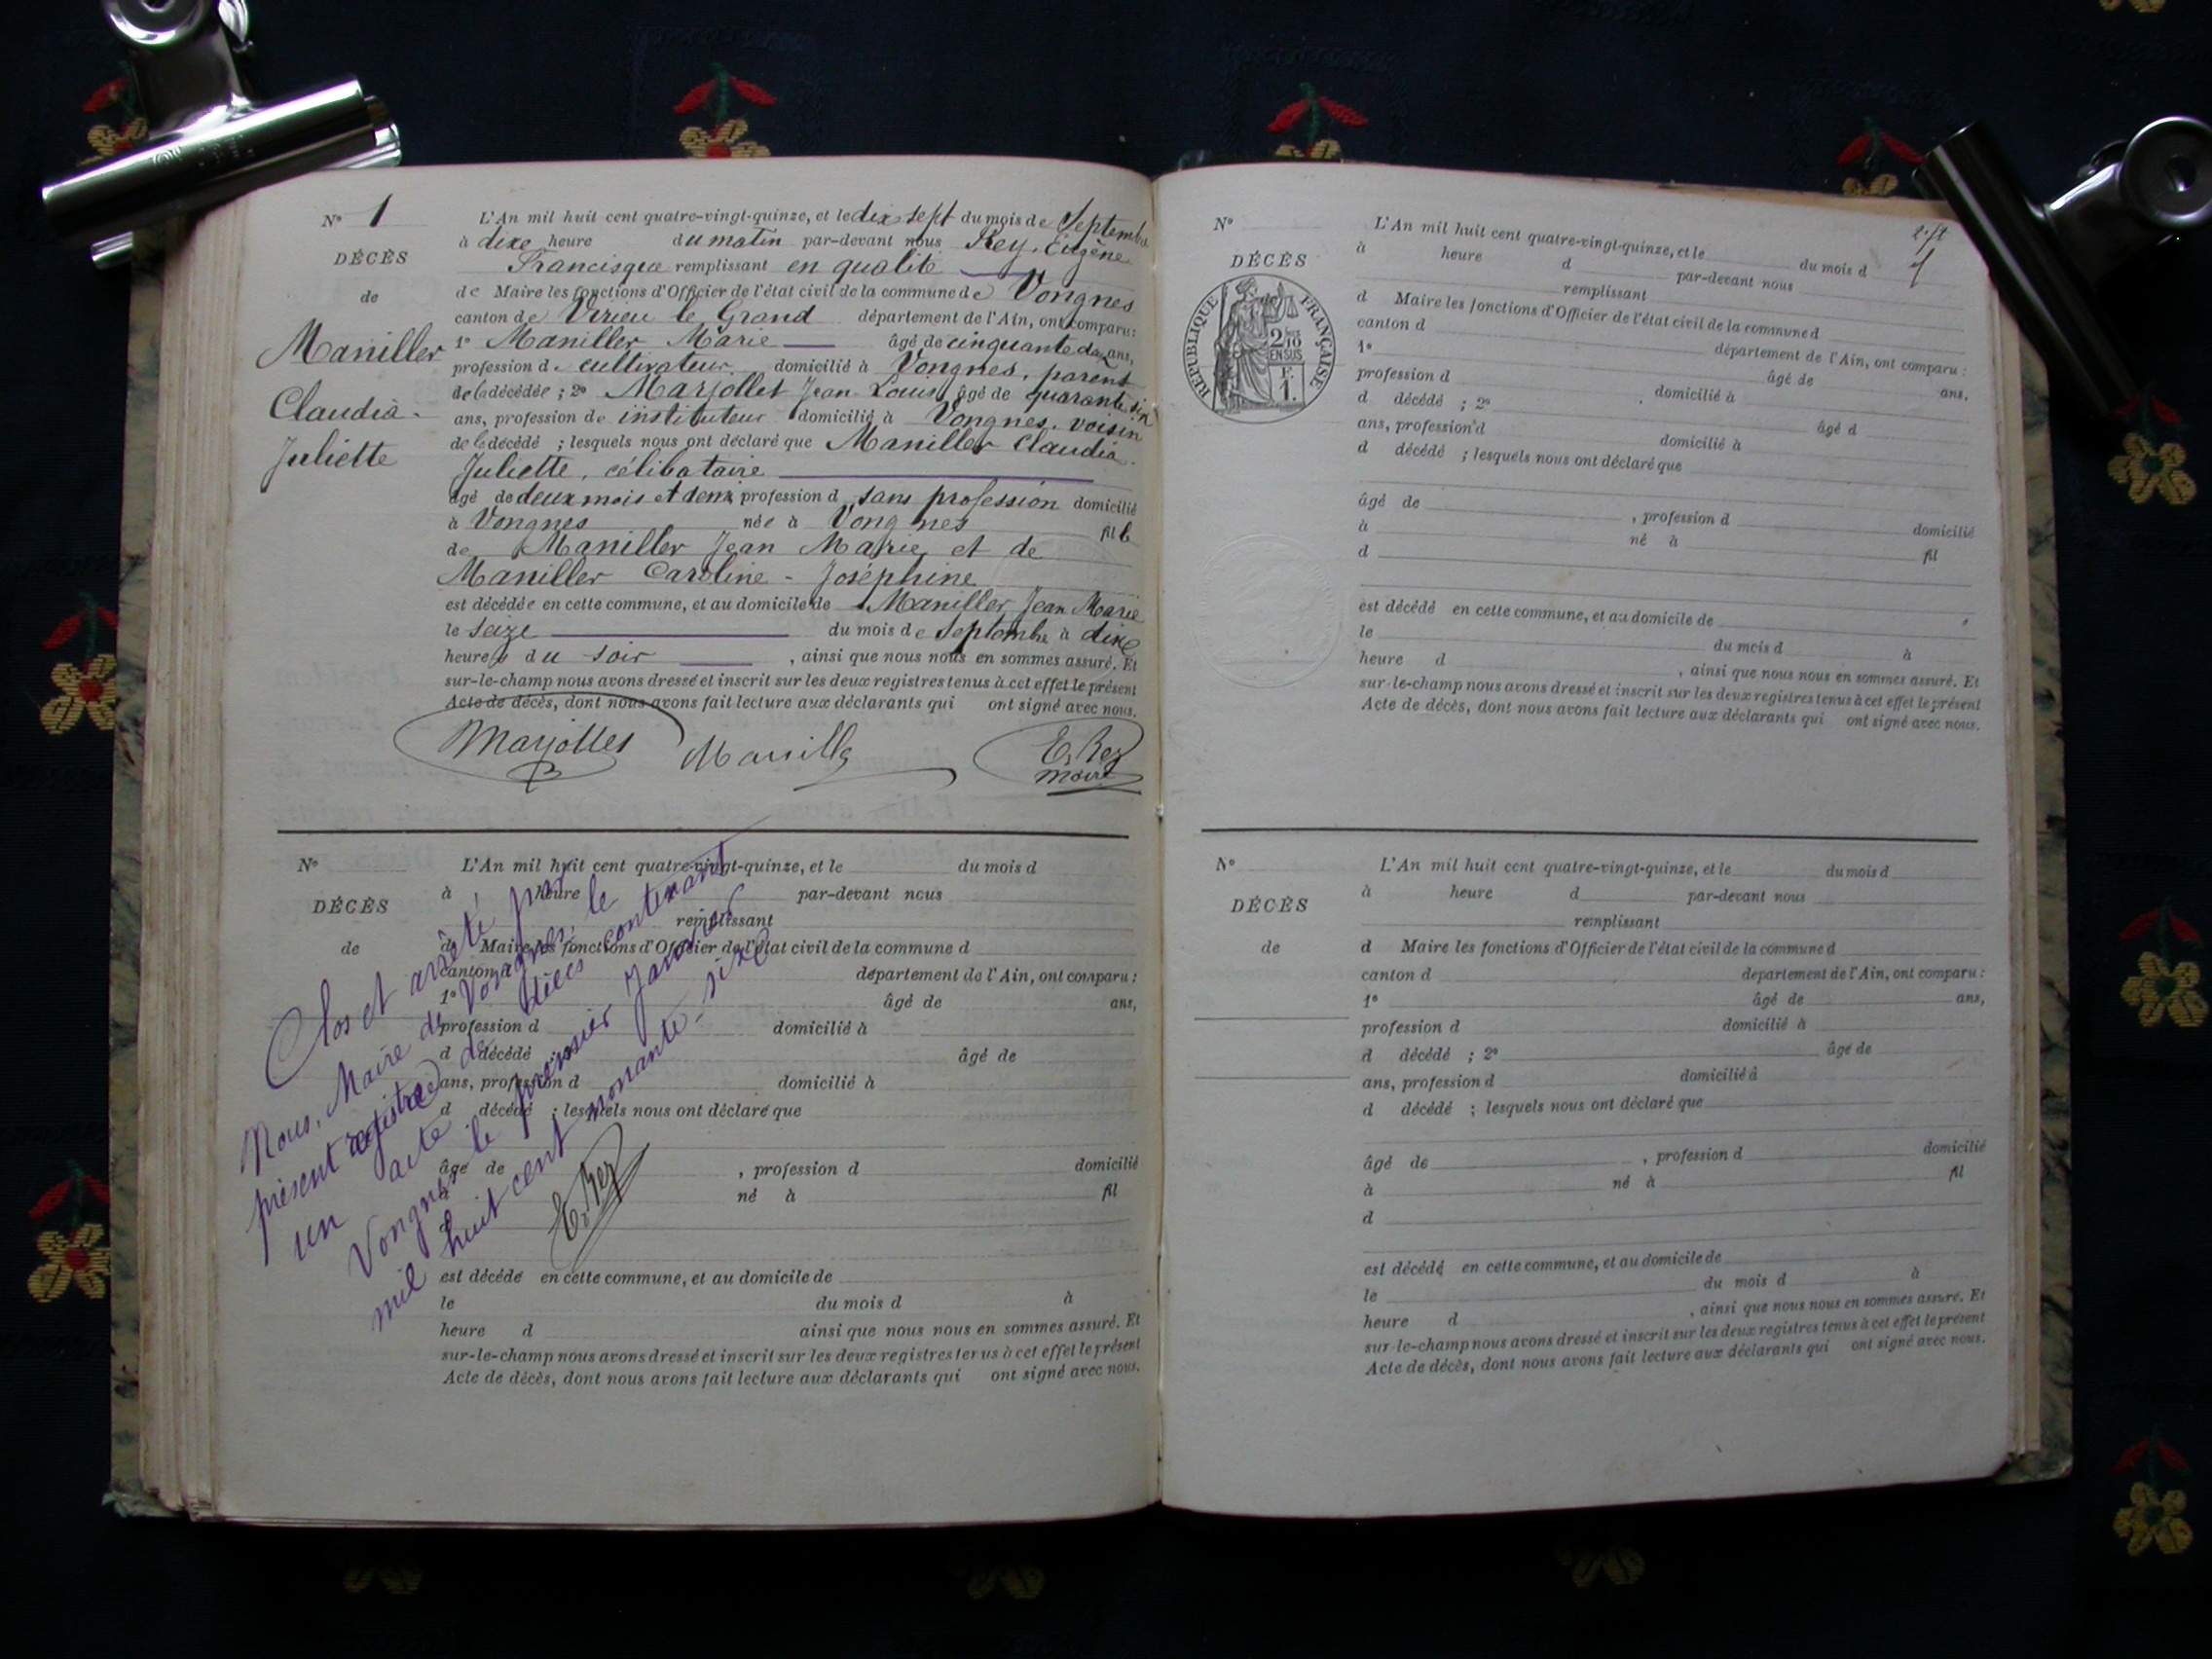 N° 1
DÉCÈS
de
Maniller
Claudia-
Juliette
L'An mil huit cent quatre-vingt-quinze, et le dix sept du mois de Septembre
à dixe heure du matin par-devant nous Rey, Eugène
Francisque remplissant en qualité
de Maire les fonctions d'Officier de l'état civil de la commune de Vongnes
canton de Virieu le Grand département de l'Ain, ont comparu:
1° Maniller Marie âgé de cinquante dans,
profession de cultivateur domicilié à Vongnes, parent
de la décédée ; 2° Marjollet Jean Louis âgé de quarante six
ans, profession de instituteur domicilié à Vongnes, voisin
de la décédé ; lesquels nous ont déclaré que Maniller Claudia
Juliette, célibataire
âgé de deux mois et demi profession d sans profession domicilié
à Vongnes née à Vongnes fille
de Maniller Jean Marie et de
Maniller Caroline - Joséphine
est décédée en cette commune, et au domicile de Maniller Jean Marie
le seize du mois de Septembre à dixe
heures du soir , ainsi que nous nous en sommes assuré. Et
sur-le-champ nous avons dressé et inscrit sur les deux registres tenus à cet effet le présent
Acte de décès, dont nous avons fait lecture aux déclarants qui ont signé avec nous.
Marjollet Maniller E. Rey
maire
N°
DÉCÈS
de
L'An mil huit cent quatre-vingt-quinze, et le du mois d
à heure par-devant nous
remplissant
d Maire les fonctions d'Officier de l'état civil de la commune d
canton d département de l'Ain, ont comparu :
1° âgé de ans,
profession d domicilié à
d décédé âgé de
ans, profession d domicilié à
d décédé ; lesquels nous ont déclaré que
âgé de , profession d domicilié
à né à fil
est décédé en cette commune, et au domicile de
le du mois d à
heure d ainsi que nous nous en sommes assuré. Et
sur-le-champ nous avons dressé et inscrit sur les deux registres tenus à cet effet le présent
Acte de décès, dont nous avons fait lecture aux déclarants qui ont signé avec nous.
Clos et arrêté par
Nous, Maire de Vongnes, le
présent registre de décès contenant
un acte
Vongnes le premier Janvier
mil huit cent nonante-sixe
E. Rey
N°
DÉCÈS
RÉPUBLIQUE FRANÇAISE
2/10
EN SUS
F.
1.
L'An mil huit cent quatre-vingt-quinze, et le du mois d
à heure d par-devant nous
remplissant
d Maire les fonctions d'Officier de l'état civil de la commune d
canton d département de l'Ain, ont comparu :
1° âgé de ans.
profession d domicilié à
d décédé ; 2° âgé d
ans, profession d domicilié à
d décédé ; lesquels nous ont déclaré que
âgé de , profession d domicilié
à né à fil
d
est décédé en cette commune, et au domicile de
le du mois d à
heure d , ainsi que nous nous en sommes assuré. Et
sur-le-champ nous avons dressé et inscrit sur les deux registres tenus à cet effet le présent
Acte de décès, dont nous avons fait lecture aux déclarants qui ont signé avec nous.
N°
DÉCÈS
de
L'An mil huit cent quatre-vingt-quinze, et le du mois d
à heure d par-devant nous
remplissant
d Maire les fonctions d'Officier de l'état civil de la commune d
canton d département de l'Ain, ont comparu :
1° âgé de ans,
profession d domicilié à
d décédé ; 2° âgé de
ans, profession d domicilié à
d décédé ; lesquels nous ont déclaré que
âgé de , profession d domicilié
à né à fil
d
est décédé en cette commune, et au domicile de
le du mois d à
heure d , ainsi que nous nous en sommes assuré. Et
sur-le-champ nous avons dressé et inscrit sur les deux registres tenus à cet effet le présent
Acte de décès, dont nous avons fait lecture aux déclarants qui ont signé avec nous.